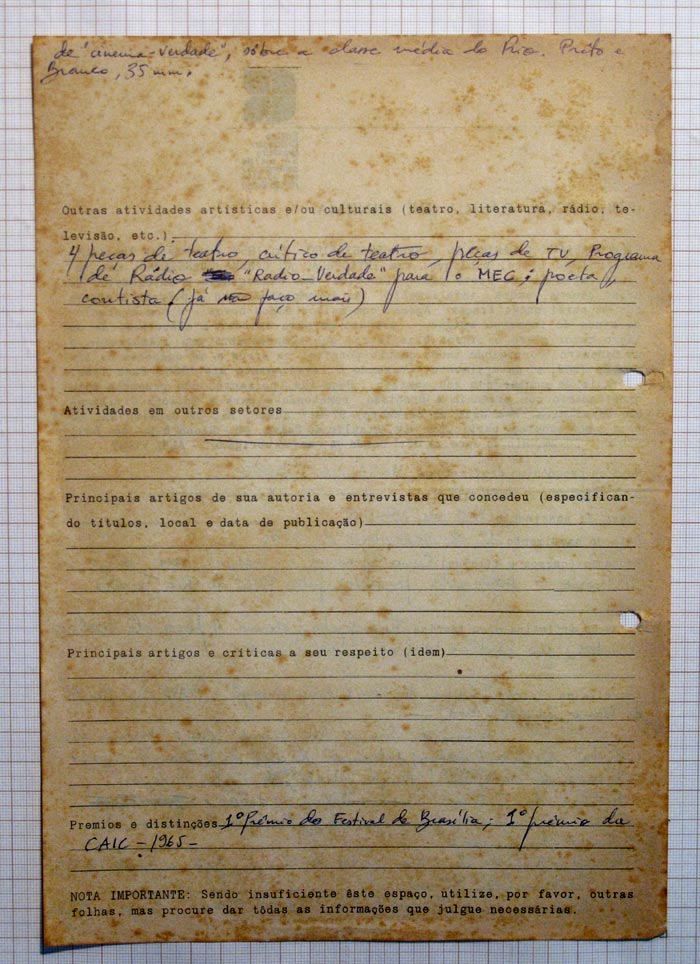 de "cinema-verdade", sôbre a classe média do Rio. Prêto e
Branco, 35 mm.
Outras atividades artísticas e/ou culturais (teatro, literatura, rádio, te-
levisão, etc.)
4 peças de teatro, crítico de teatro, peças de TV, Programa
de Rádio "Radio-Verdade" para o MEC; poeta,
contista (já não faço mais)
Atividades em outros setores
Principais artigos de sua autoria e entrevistas que concedeu (especifican-
do títulos, local e data de publicação)
Principais artigos e críticas a seu respeito (idem)
Premios e distinções 1º Prêmio do Festival de Brasília; 1º prêmio da
CAIC - 1965 -
NOTA IMPORTANTE: Sendo insuficiente êste espaço, utilize, por favor, outras
folhas, mas procure dar tôdas as informações que julgue necessárias.